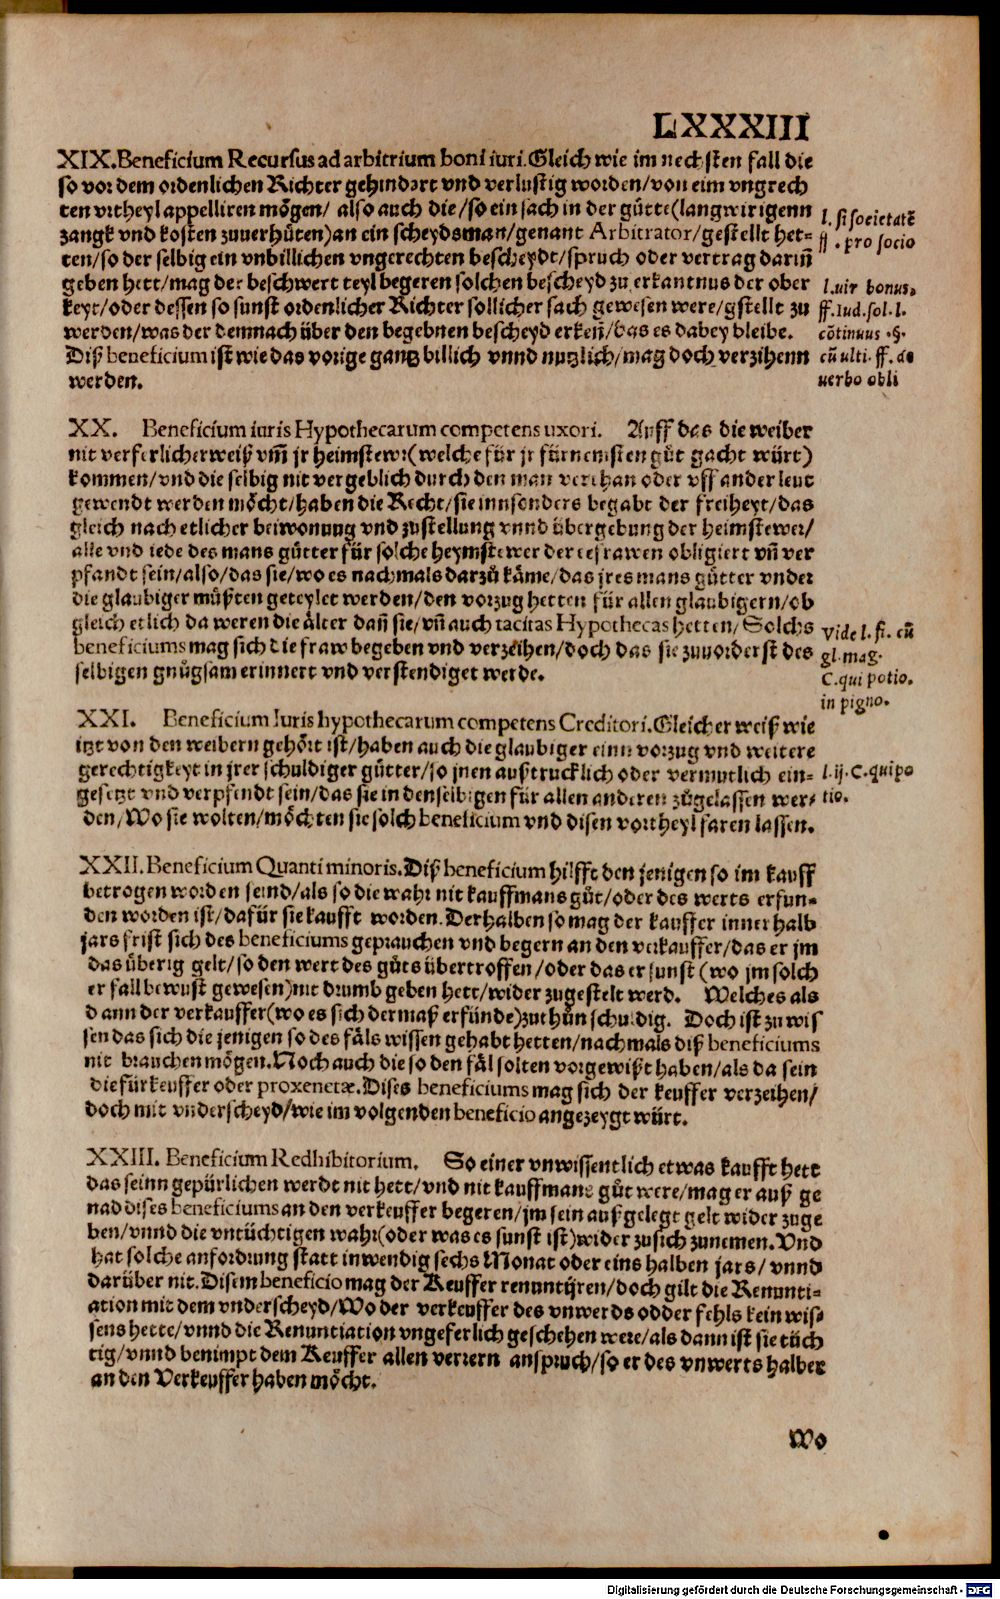 LXXXIII
XIX. Beneficium Recursus ad arbitrium boni iuri. Gleich wie im nechsten fall die
so vor dem ordenlichen Richter gehindert vnd verlustig worden/von eim vngrech
ten vrtheyl appelliren mögen/ also auch die/so ein sach in der gütte(langwirigenn
zangk vnd kosten zuuerhüten)an ein scheydsman/genant Arbitrator/gestellt het-
ten/so der selbig ein vnbillichen vngerechten bescheydt/spruch oder vertrag dariñ
geben hett/mag der beschwert teyl begeren solchen bescheyd zu erkantnus der ober
keyt/oder dessen so sunst ordenlicher Richter sollicher sach gewesen were/gstellt zu
werden/was der demnach über den begebnen bescheyd erkeñ/das es dabey bleibe.
Diß beneficium ist wie das vorige gantz billich vnnd nutzlich/mag doch verzihenn
werden.
l. si societatẽ
ff. pro socio
l. uir bonus.
ff. Iud. sol. l.
cõtinuus .§.
cũ ulti. ff. de
uerbo obli
XX. Beneficium iuris Hypothecarum competens uxori. Auff das die weiber
nit verferlicherweiß vm̃ jr heimstewr(welche für jr fürnemsten güt gacht würt)
kommen/vnd die selbig nit vergeblich durch den man verthan oder vff ander leut
gewendt werden möcht/haben die Recht/sie innsonders begabt der freiheyt/das
gleich nach etlicher beiwonung vnd zustellung vnnd übergebung der heimstewer/
alle vnd iede des mans gütter für solche heymstewer der eefrawen obligiert vñ ver
pfandt sein/also/das sie/wo es nachmals darzů käme/das jres mans gütter vnder
die glaubiger müßten geteylet werden/den vorzug hetten für allen glaubigern/ob
gleich etlich da weren die älter dañ sie/vñ auch tacitas Hypothecas hetten/Solchs
beneficiums mag sich die fraw begeben vnd verzeihen/doch das sie zuuorderst des
selbigen gnůgsam erinnert vnd verstendiget werde.
Vide l. fi. cũ
gl. mag.
C. qui potio.
in pigno.
XXI. Beneficium Iuris hypothecarum competens Creditori. Gleicher weiß wie
itzt von den weibern gehört ist/haben auch die glaubiger einn vorzug vnd weitere
gerechtigkeyt in jrer schuldiger gütter/so jnen außtrucklich oder vermutlich ein-
gesetzt vnd verpfendt sein/das sie in denselbigen für allen anderen zůgelassen wer-
den/Wo sie wolten/möchten sie solch beneficium vnd disen vortheyl faren lassen.
l. ij. C. qui po
tio.
XXII. Beneficium Quanti minoris. Diß beneficium hilfft den jenigen so im kauff
betrogen worden seind/als so die wahr nit kauffmans gůt/oder des werts erfun-
den worden ist/dafür sie kaufft worden. Derhalben so mag der kauffer inner halb
jars frist sich des beneficiums geprauchen vnd begern an den verkauffer/das er jm
das überig gelt/so den wert des gůts übertroffen/oder das er sunst (wo jm solch
er fall bewust gewesen)nit drumb geben hett/wider zugestelt werd. Welches als
dann der verkauffer(wo es sich dermaß erfünde)zuthůn schuldig. Doch ist zu wis
sen das sich die jenigen so des fäls wissen gehabt hetten/nachmals diß beneficiums
nit brauchen mögen. Noch auch die so den fäl solten vorgewißt haben/als da sein
die fürkeuffer oder proxenetæ. Dises beneficiums mag sich der keuffer verzeihen/
doch mit vnderscheyd/wie im volgenden beneficio angezeygt würt.
XXIII. Beneficium Redhibitorium. So einer vnwissentlich etwas kaufft hett
das seinn gepürlichen werdt nit hett/vnd nit kauffmans gůt were/mag er auß ge
nad dises beneficiums an den verkeuffer begeren/jm sein außgelegt gelt wider zuge
ben/vnnd die vntüchtigen wahr(oder was es sunst ist)wider zu sich zunemen. Vnd
hat solche anfordrung statt inwendig sechs Monat oder eins halben jars/ vnnd
darüber nit. Disem beneficio mag der Keuffer renuntijren/doch gilt die Renunti-
ation mit dem vnderscheyd/Wo der verkeuffer des vnwerds odder fehls kein wis-
sens hette/vnnd die Renuntiation vngeferlich geschehen were/als dann ist sie tüch
tig/vnnd benimpt dem Keuffer allen verrern anspruch/so er des vnwerts halber
an den Verkeuffer haben möcht.
Wo
Digitalisierung gefördert durch die Deutsche Forschungsgemeinschaft - DFG